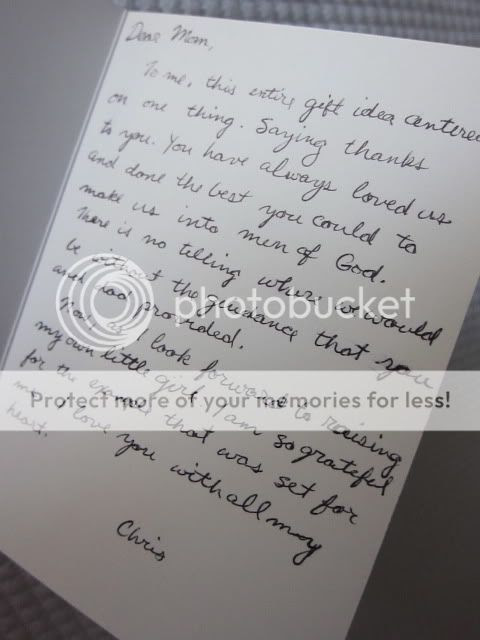 Dear Mom,
To me, this entire gift idea centered
on one thing. Saying thanks
to you. You have always loved us
and done the best you could to
make us into men of God.
There is no telling where we would
be without the guidance that you
and Dad provided.
Now, as I look forward to raising
my own little girl I am so grateful
for the example that was set for
me. I love you with all my
heart.
Chris
photobucket
Protect more of your memories for less!